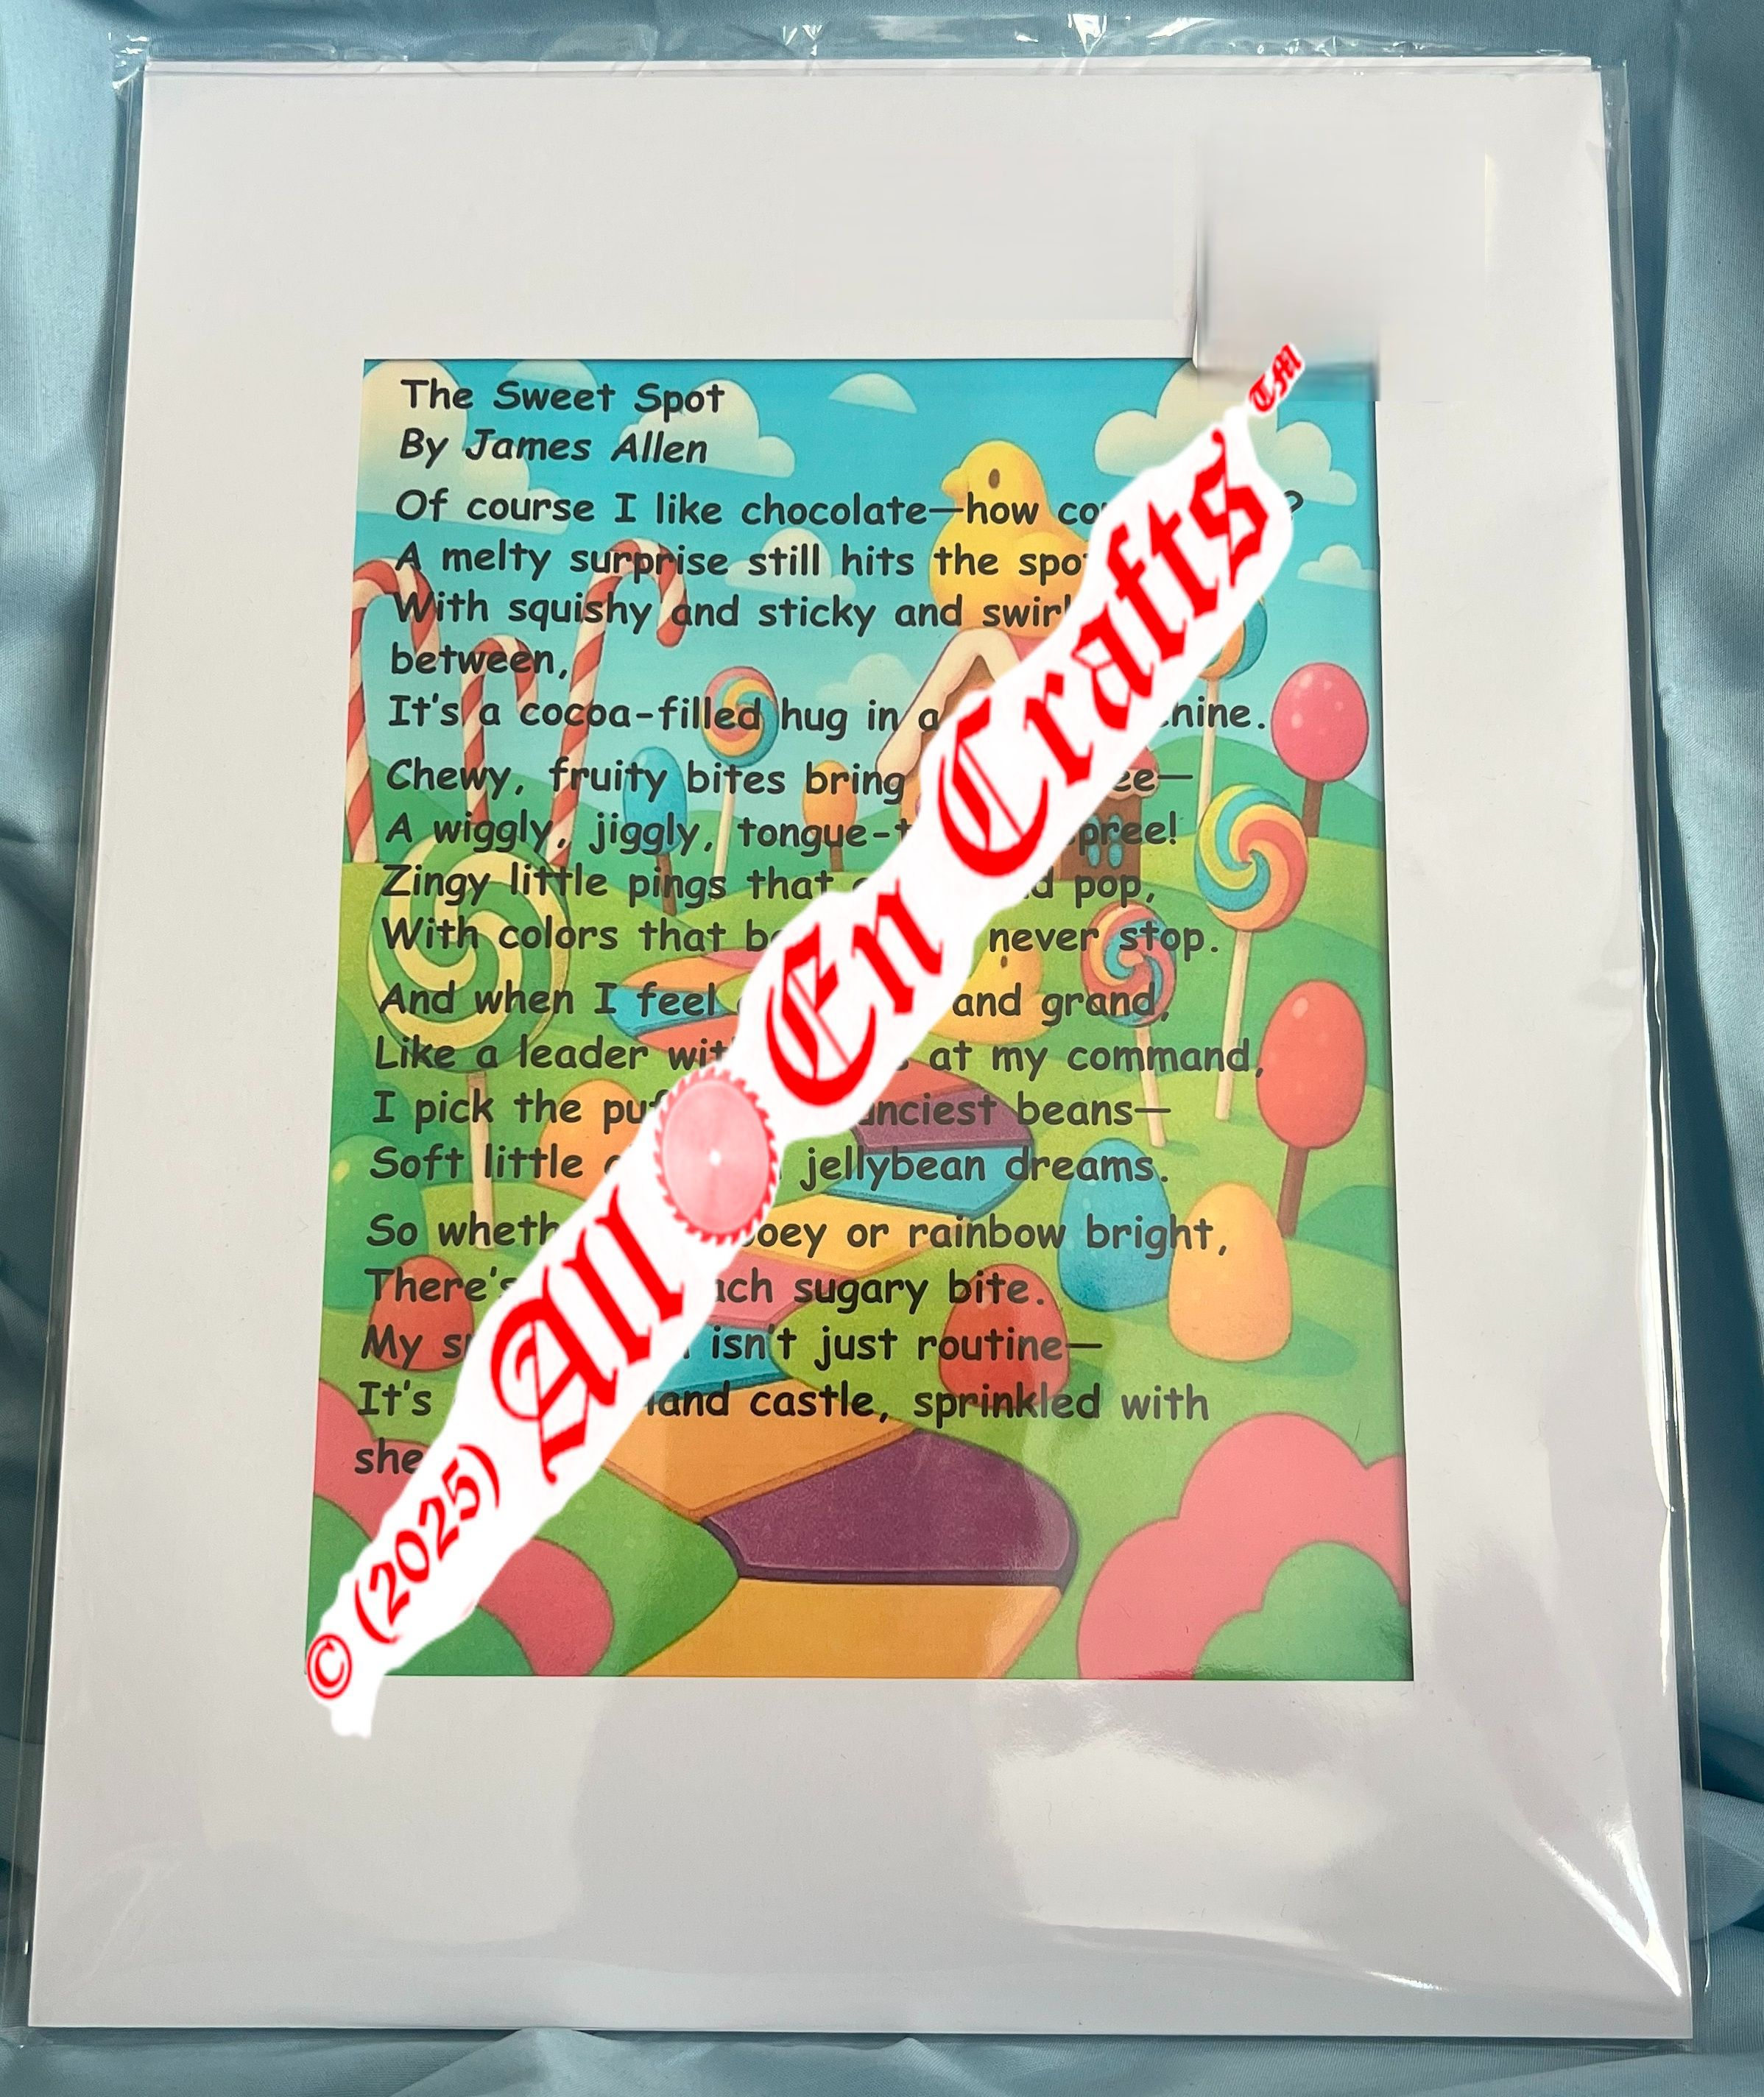 The Sweet Spot
By James Allen
Of course I like chocolate—how ?
A melty surprise still hits the
With squishy and sticky and
between,
It's a cocoa-filled hug in a
Chewy, fruity bites bring
A wiggly, jiggly,
Zingy little pings that pop,
With colors that never stop.
And when I feel and grand,
Like a leader at my command,
I pick the beans—
Soft little jellybean dreams.
So or rainbow bright,
sugary bite.
My isn't just routine—
It's castle, sprinkled with
© (2025) All En Crafts TM